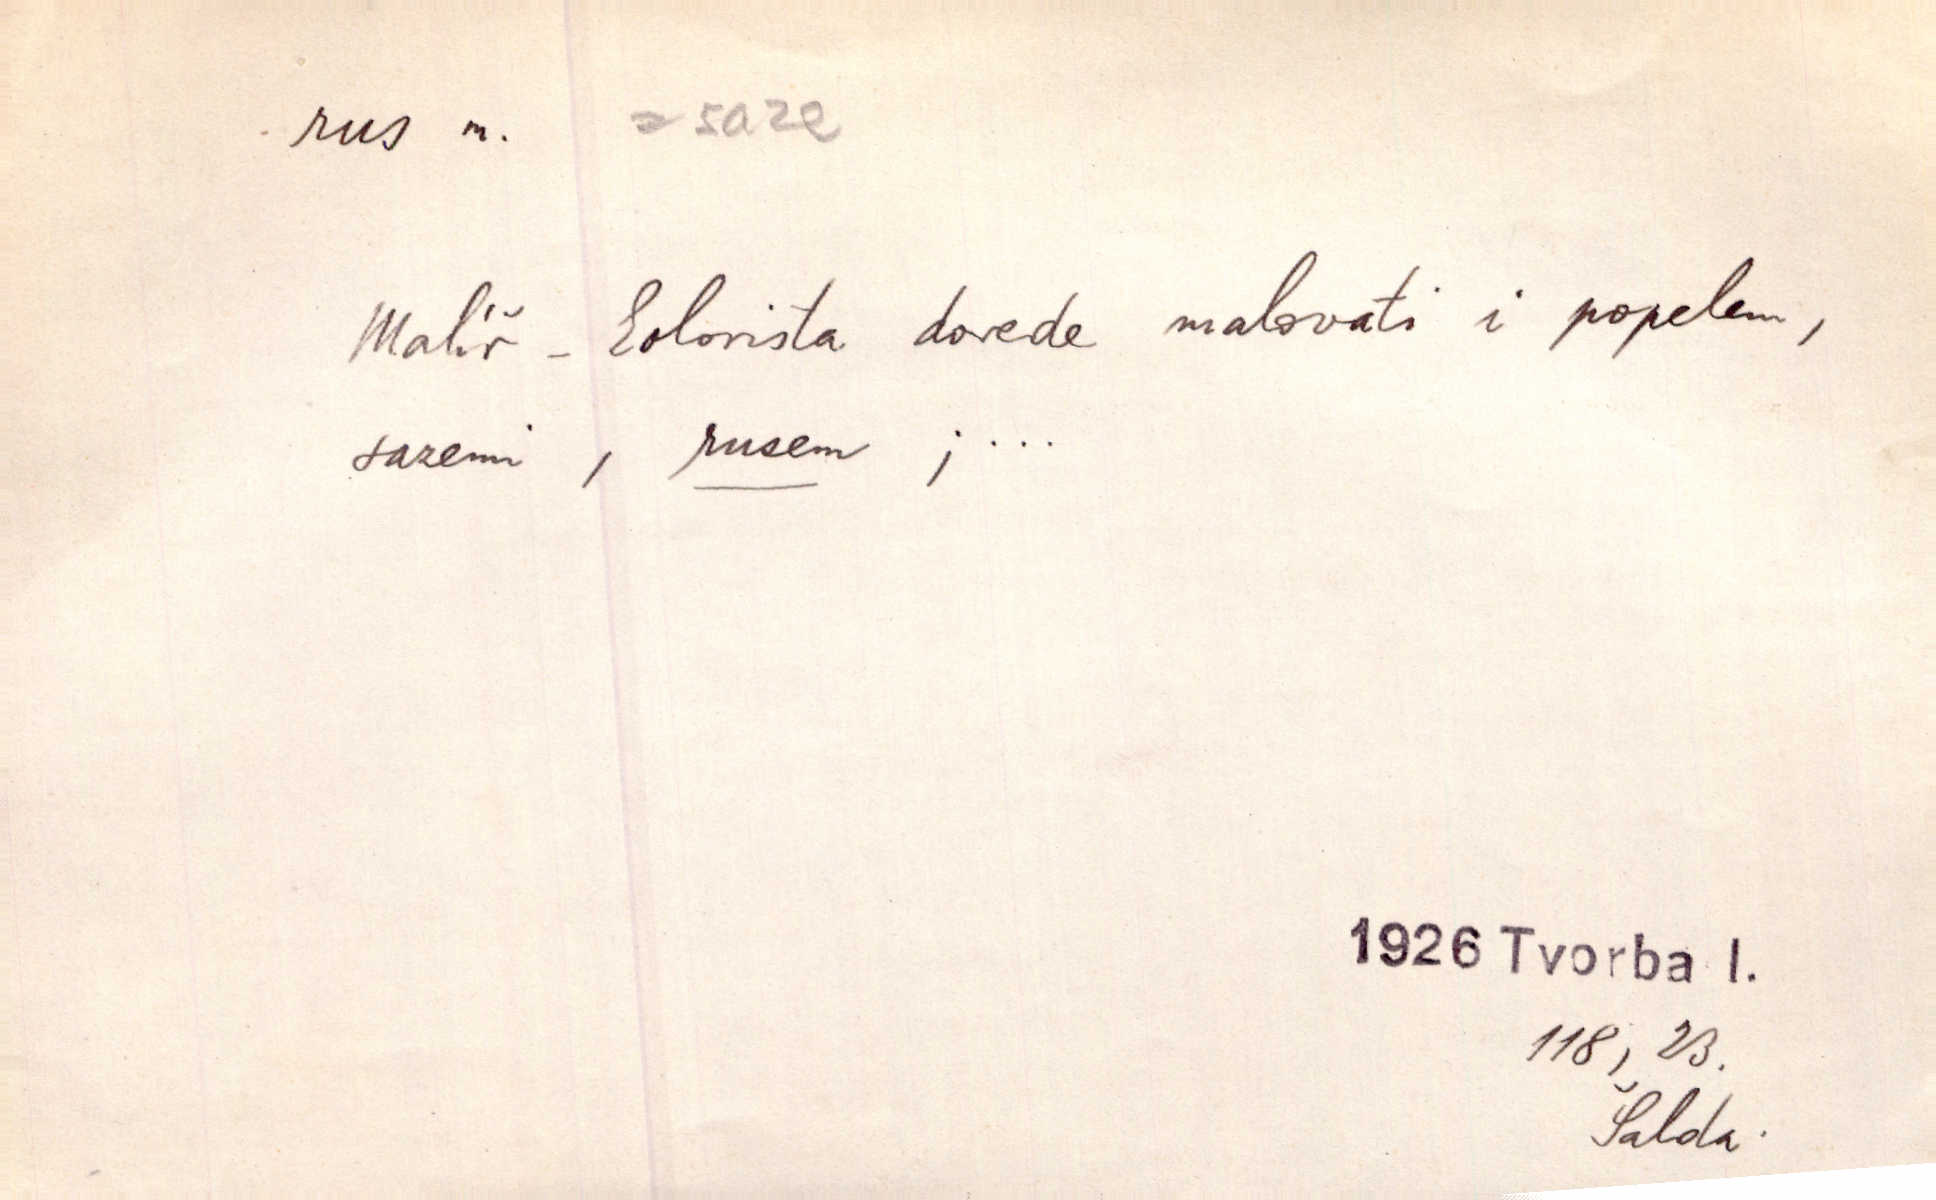 rus m. = saze
Malíř - kolorista dovede malovati i popelem,
sazemi, rusem ; ...
1926 Tvorba I.
118, 23.
Šalda.